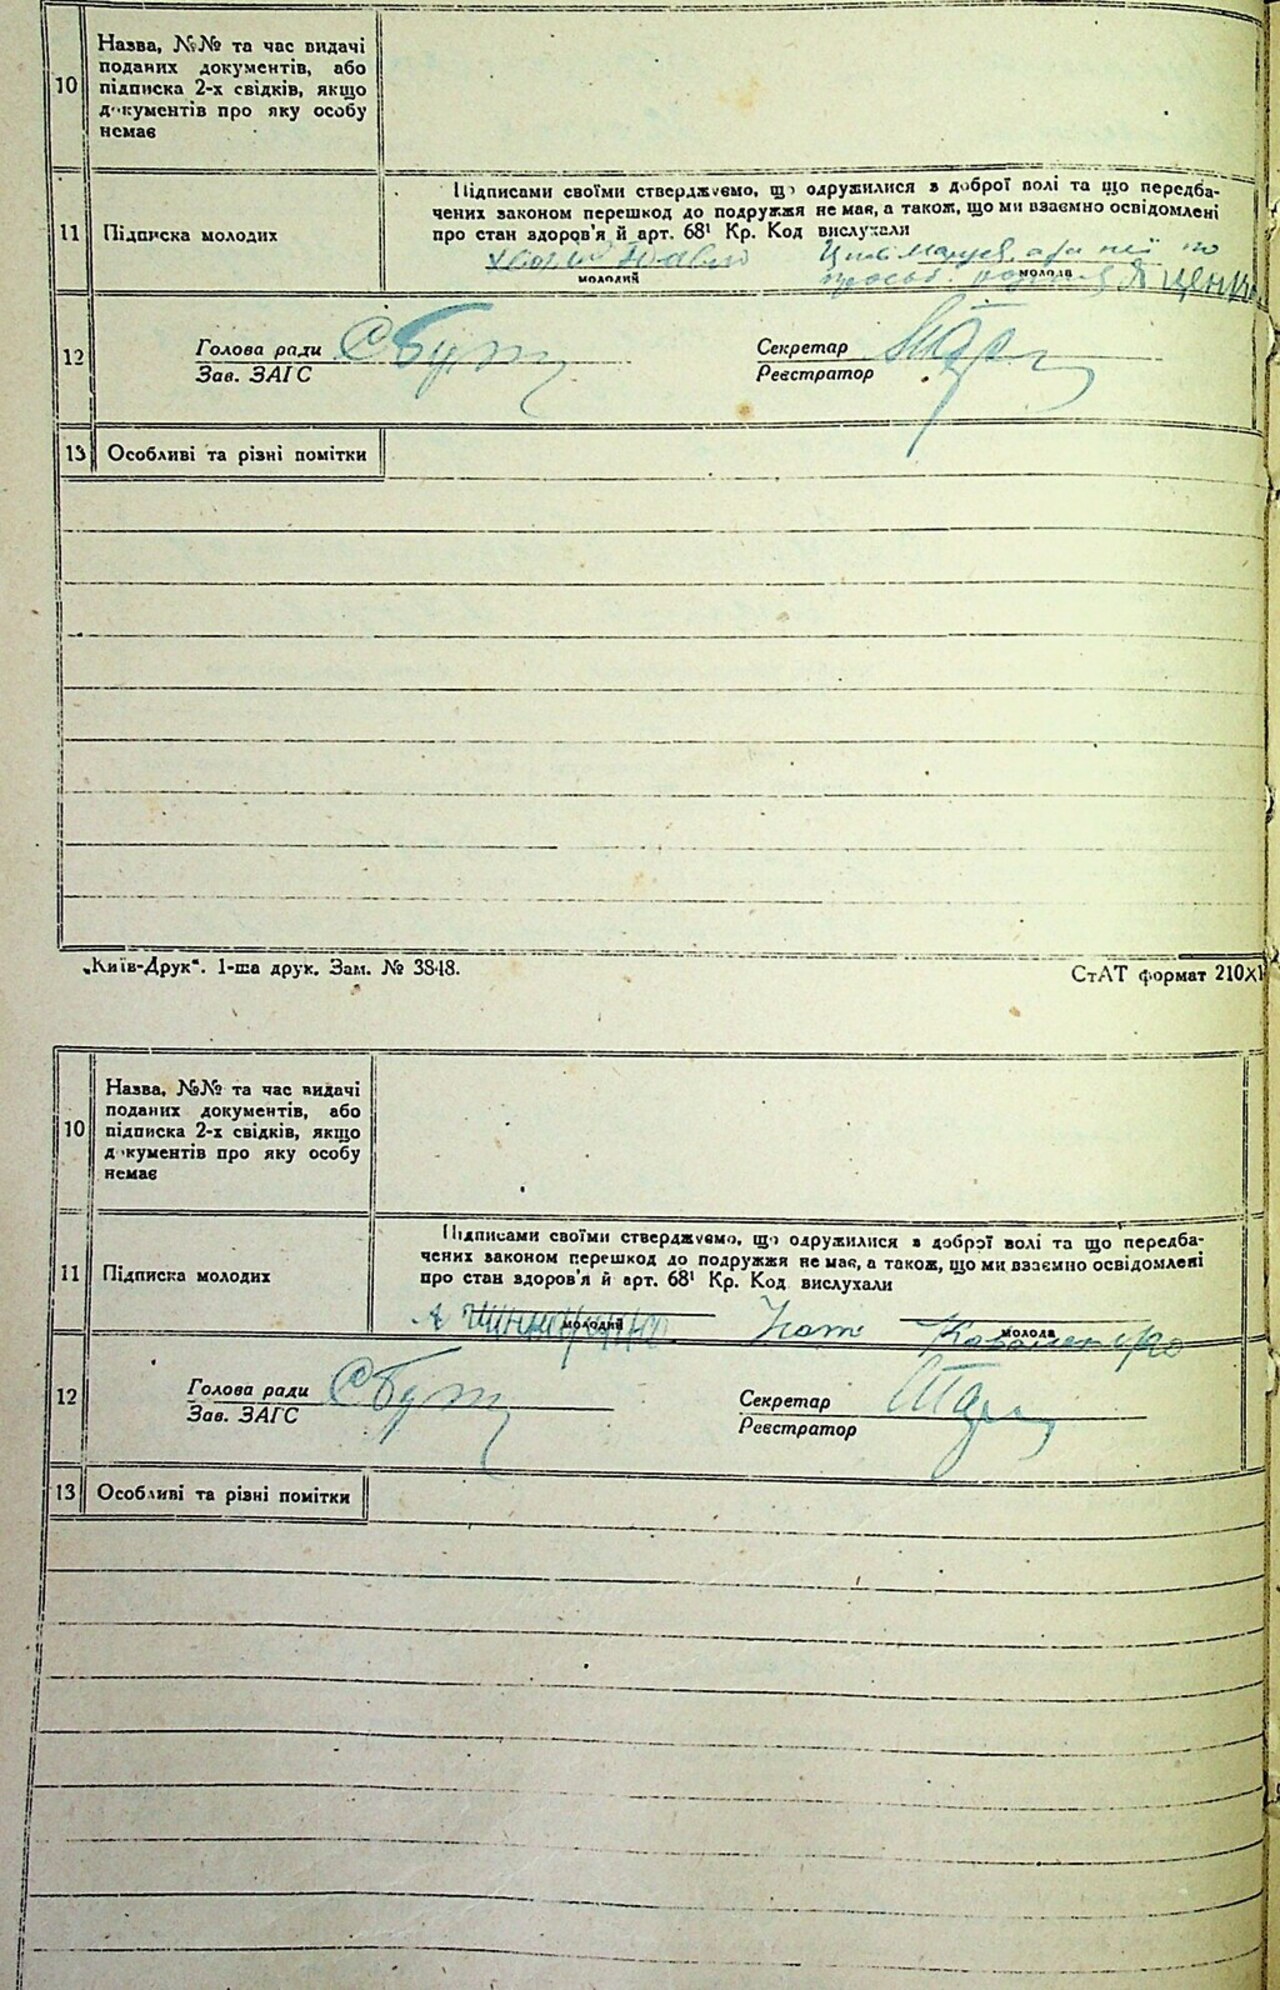 10
Назва, №№ та час видачі
поданих документів, або
підписка 2-х свідків, якщо
документів про яку особу
немає
11
Підписка молодих
Підписами своїми стверджуємо, що одружилися з доброї волі та що передба-
чених законом перешкод до подружжя не має, а також, що ми взаємно освідомлені
про стан здоров'я й арт. 68¹ Кр. Код вислухали
Павло
молодий
молода
Яценко
12
Голова ради
Зав. ЗАГС
Секретар
Реєстратор
13
Особливі та різні помітки
„Київ-Друк“. 1-ша друк. Зам. № 3848.
СтАТ формат 210X1
10
Назва, №№ та час видачі
поданих документів, або
підписка 2-х свідків, якщо
документів про яку особу
немає
11
Підписка молодих
Підписами своїми стверджуємо, що одружилися з доброї волі та що передба-
чених законом перешкод до подружжя не має, а також, що ми взаємно освідомлені
про стан здоров'я й арт. 68¹ Кр. Код вислухали
молодий
молода
12
Голова ради
Зав. ЗАГС
Секретар
Реєстратор
13
Особливі та різні помітки